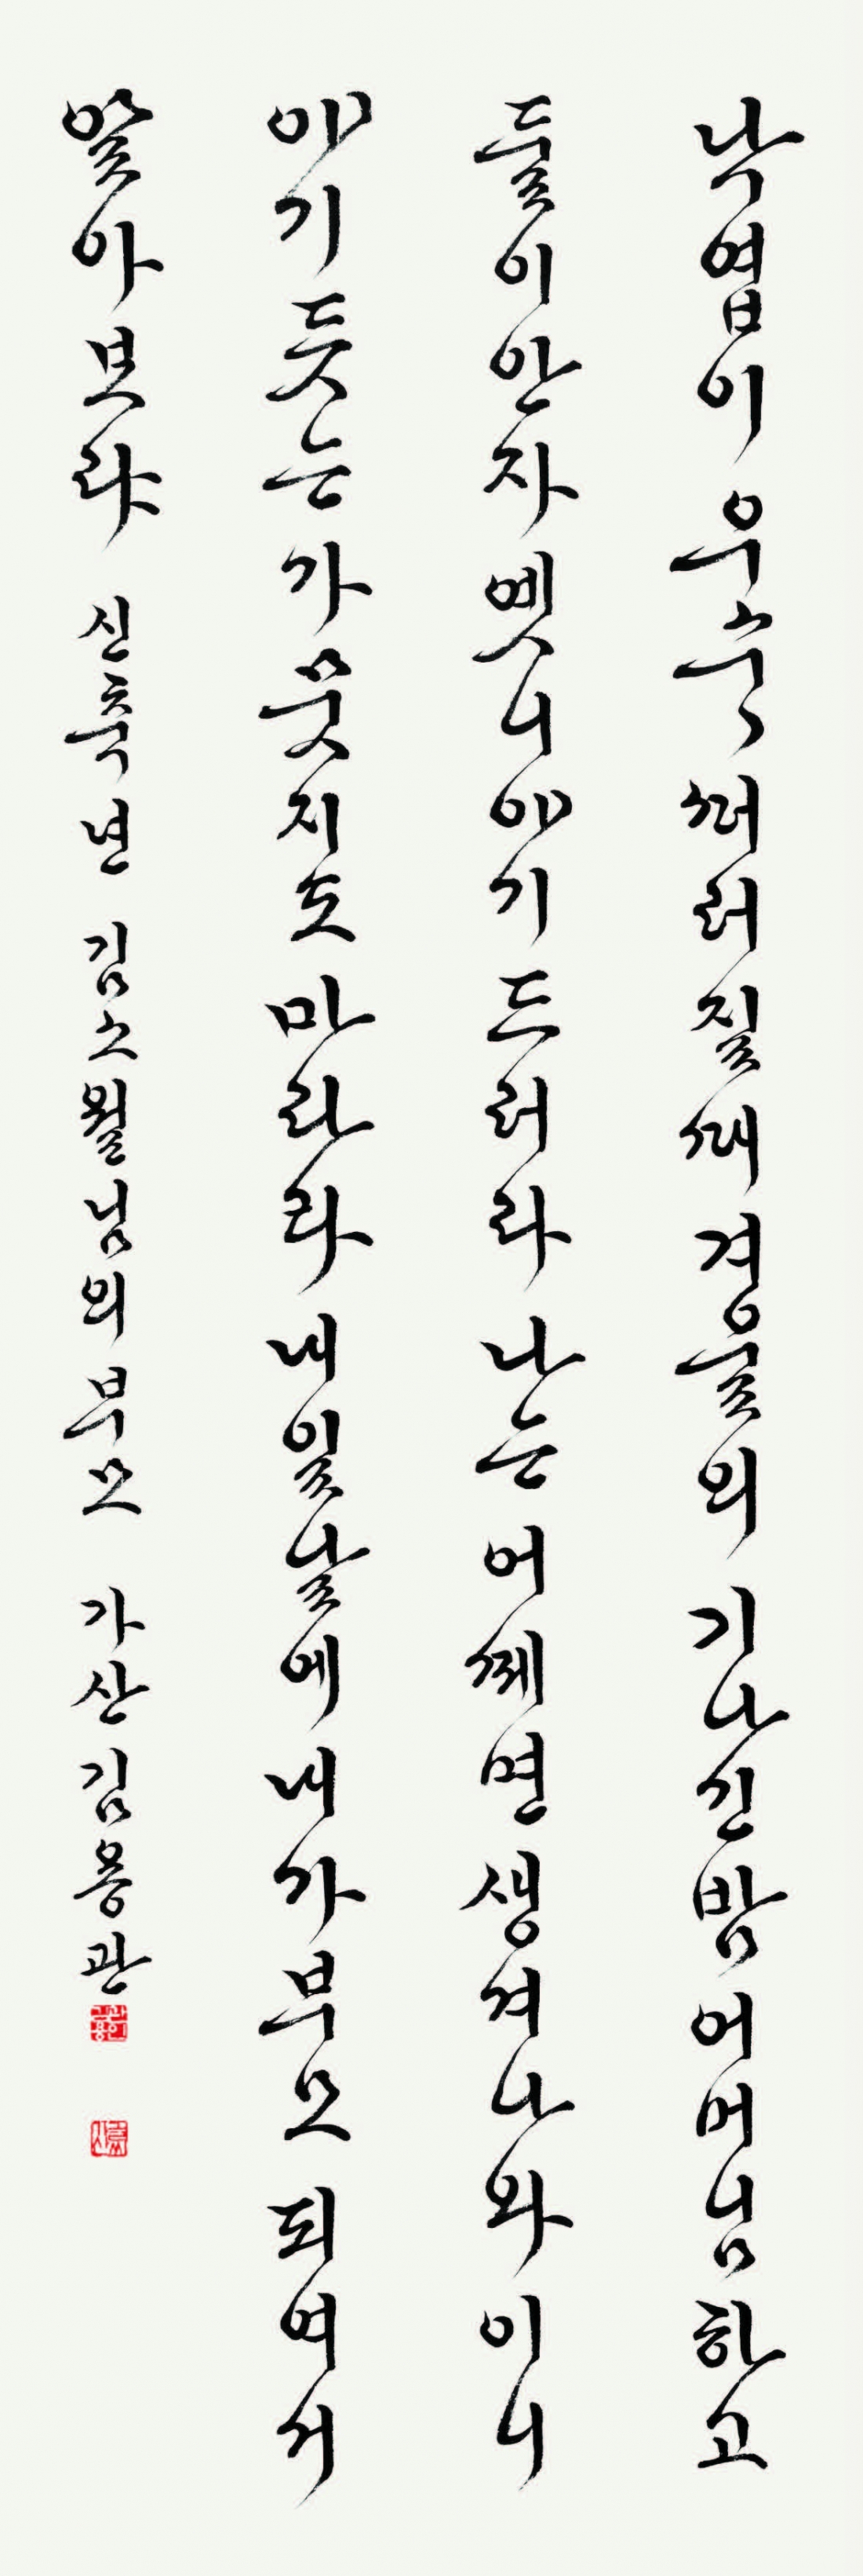 낙엽이 우수〻 ᄯᅥ러질ᄯᅢ 겨울의 기나긴밤 어머님하고
둘이안자 옛니야기 드러라 나는 어ᄶᅦ면 생겨나와 이니
야기 듯는가 뭇지도 마라라 내일날에 내가 부모 되여서
알아보랴 신축년 김소월님의 부모 가산 김용관